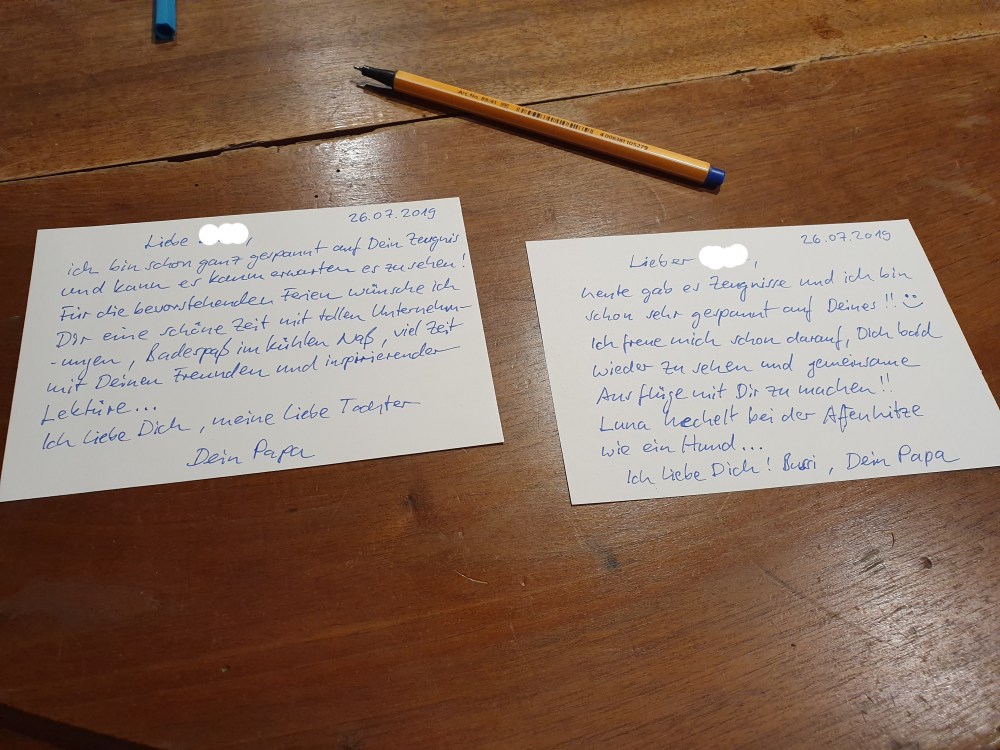 Art.-Nr. 88/41 4 006381 105279
26.07.2019
Liebe ,
ich bin schon ganz gespannt auf Dein Zeugnis
und kann es kaum erwarten es zu sehen!
Für die bevorstehenden Ferien wünsche ich
Dir eine schöne Zeit mit tollen Unternehm-
-ungen, Badespaß im kühlen Naß, viel Zeit
mit Deinen Freunden und inspirierender
Lektüre...
Ich liebe Dich, meine liebe Tochter
Dein Papa
26.07.2019
Lieber ,
heute gab es Zeugnisse und ich bin
schon sehr gespannt auf Deines!!
Ich freue mich schon darauf, Dich bald
wieder zu sehen und gemeinsame
Ausflüge mit Dir zu machen!!
Luna hechelt bei der Affenhitze
wie ein Hund...
Ich liebe Dich! Bussi, Dein Papa